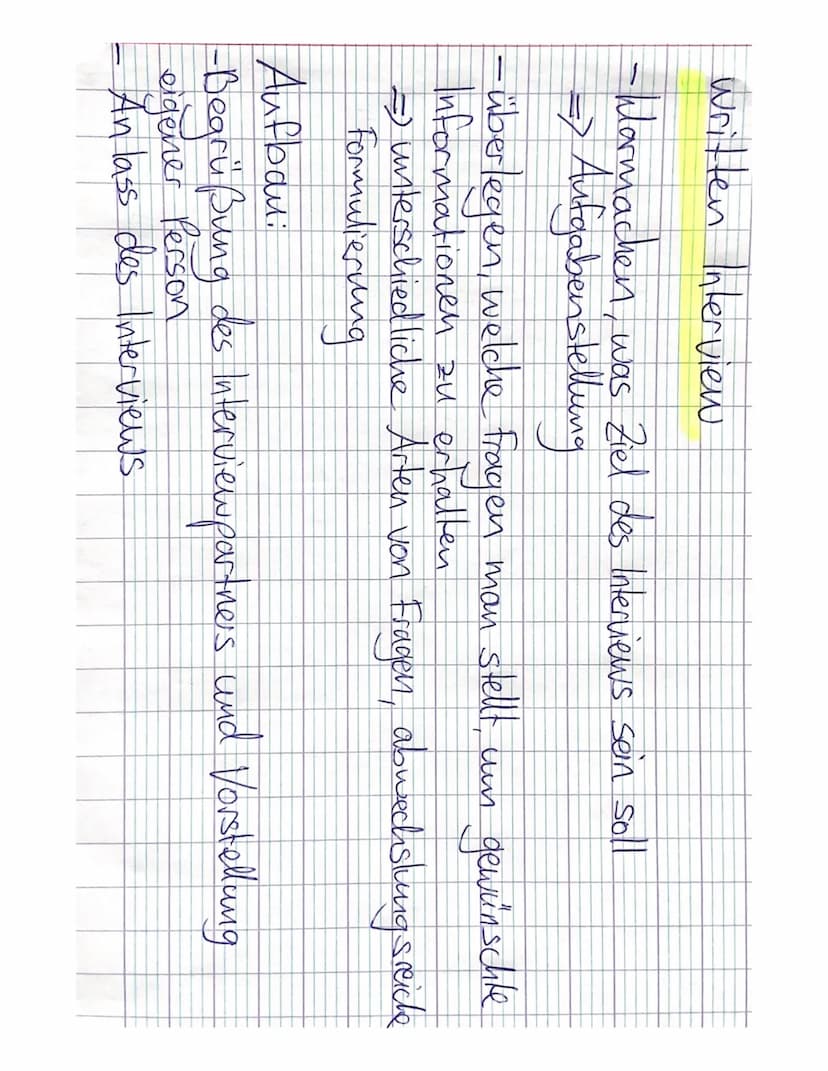 written Interview
- klarmachen, was Ziel des Interviews sein soll
=> Aufgabenstellung
- überlegen, welche Fragen man stellt, um gewünschte
Informationen zu erhalten
=> unterschiedliche Arten von Fragen, abwechslungsreiche
Formulierung
Aufbau:
- Begrüßung des Interviewpartners und Vorstellung
eigener Person
- Anlass des Interviews